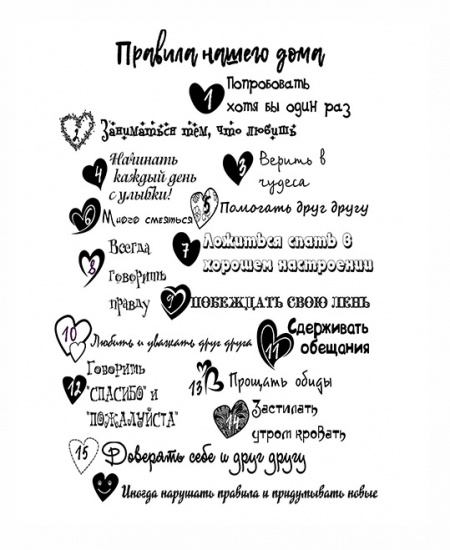 Правила нашего дома
1 Попробовать
хотя бы один раз
2 Заниматься тем, что любишь
3 Верить в
чудеса
4 Начинать
каждый день
с улыбки!
5 Помогать друг другу
6 Много смеяться
7 Ложиться спать в
хорошем настроении
8 Всегда
говорить
правду
9 ПОБЕЖДАТЬ СВОЮ ЛЕНЬ
10 Любить и уважать друг друга
11 Сдерживать
обещания
12 Говорить
"СПАСИБО" и
"ПОЖАЛУЙСТА"
13 Прощать обиды
14 Застилать
утром кровать
15 Доверять себе и друг другу
Иногда нарушать правила и придумывать новые